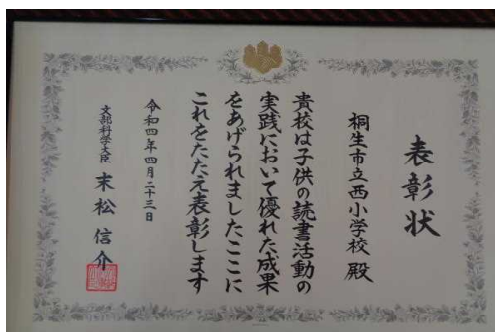 表彰状
桐生市立西小学校 殿
貴校は子供の読書活動の
実践において優れた成果
をあげられましたここに
これをたたえ表彰します
令和四年四月二十三日
文部科学大臣 末松信介